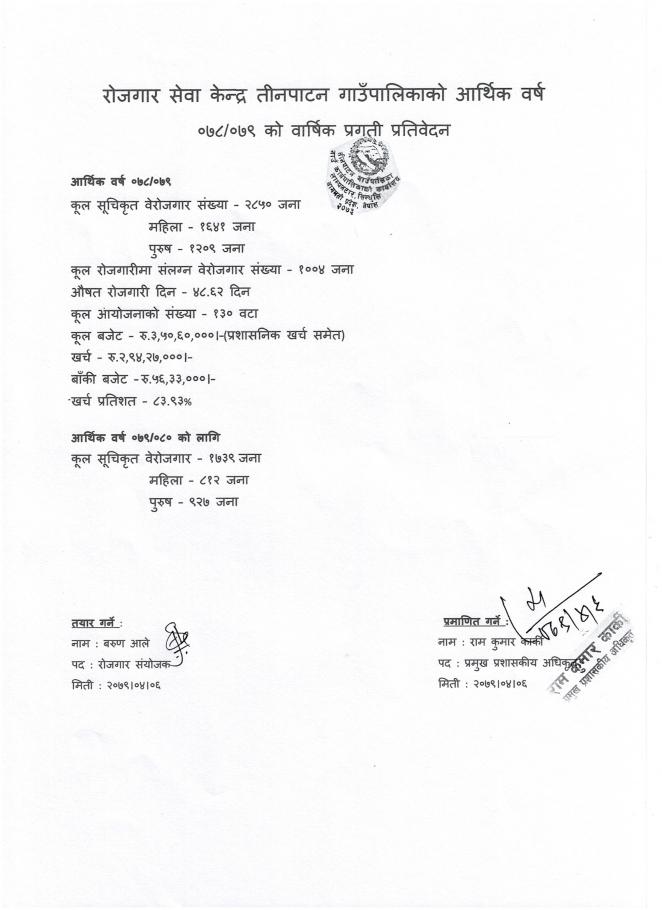 रोजगार सेवा केन्द्र तीनपाटन गाउँपालिकाको आर्थिक वर्ष
०७८/०७९ को वार्षिक प्रगती प्रतिवेदन
आर्थिक वर्ष ०७८/०७९
कूल सूचिकृत वेरोजगार संख्या - २८५० जना
महिला - १६४१ जना
पुरुष - १२०९ जना
कूल रोजगारीमा संलग्न वेरोजगार संख्या - १००४ जना
औषत रोजगारी दिन - ४८.६२ दिन
कूल आयोजनाको संख्या - १३० वटा
कूल बजेट - रु.३,५०,६०,०००।-(प्रशासनिक खर्च समेत)
खर्च - रु.२,९४,२७,०००।-
बाँकी बजेट -रु.५६,३३,०००।-
खर्च प्रतिशत - ८३.९३%
आर्थिक वर्ष ०७९/०८० को लागि
कूल सूचिकृत वेरोजगार - १७३९ जना
महिला - ८१२ जना
पुरुष - ९२७ जना
तयार गर्ने :
नाम : बरुण आले
पद : रोजगार संयोजक
मिती : २०७९।०४।०६
प्रमाणित गर्ने :
नाम : राम कुमार कार्की
पद : प्रमुख प्रशासकीय अधिकृत
मिती : २०७९।०४।०६
राम कुमार कार्की
प्रमुख प्रशासकीय अधिकृत